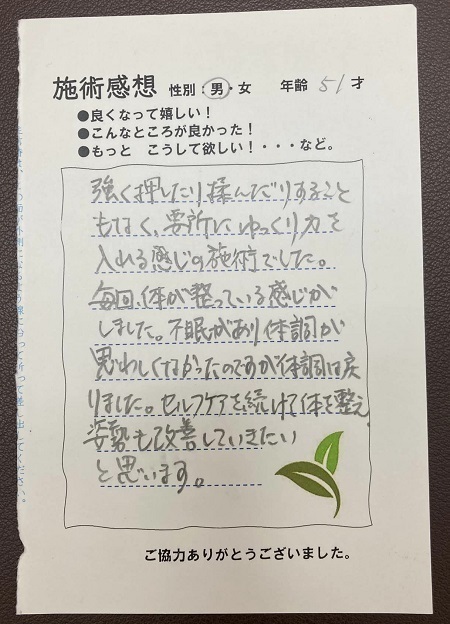 施術感想 性別：男・女 年齢 51才
●良くなって嬉しい！
●こんなところが良かった！
●もっと こうして欲しい！・・・など。
強く押したり揉んだりすること
もなく、要所にゆっくり力を
入れる感じの施術でした。
毎回、体が整っている感じが
しました。不眠があり体調が
思わしくなかったのですが体調は戻
りました。セルフケアを続けて体を整え
姿勢も改善していきたい
と思います。
ご協力ありがとうございました。